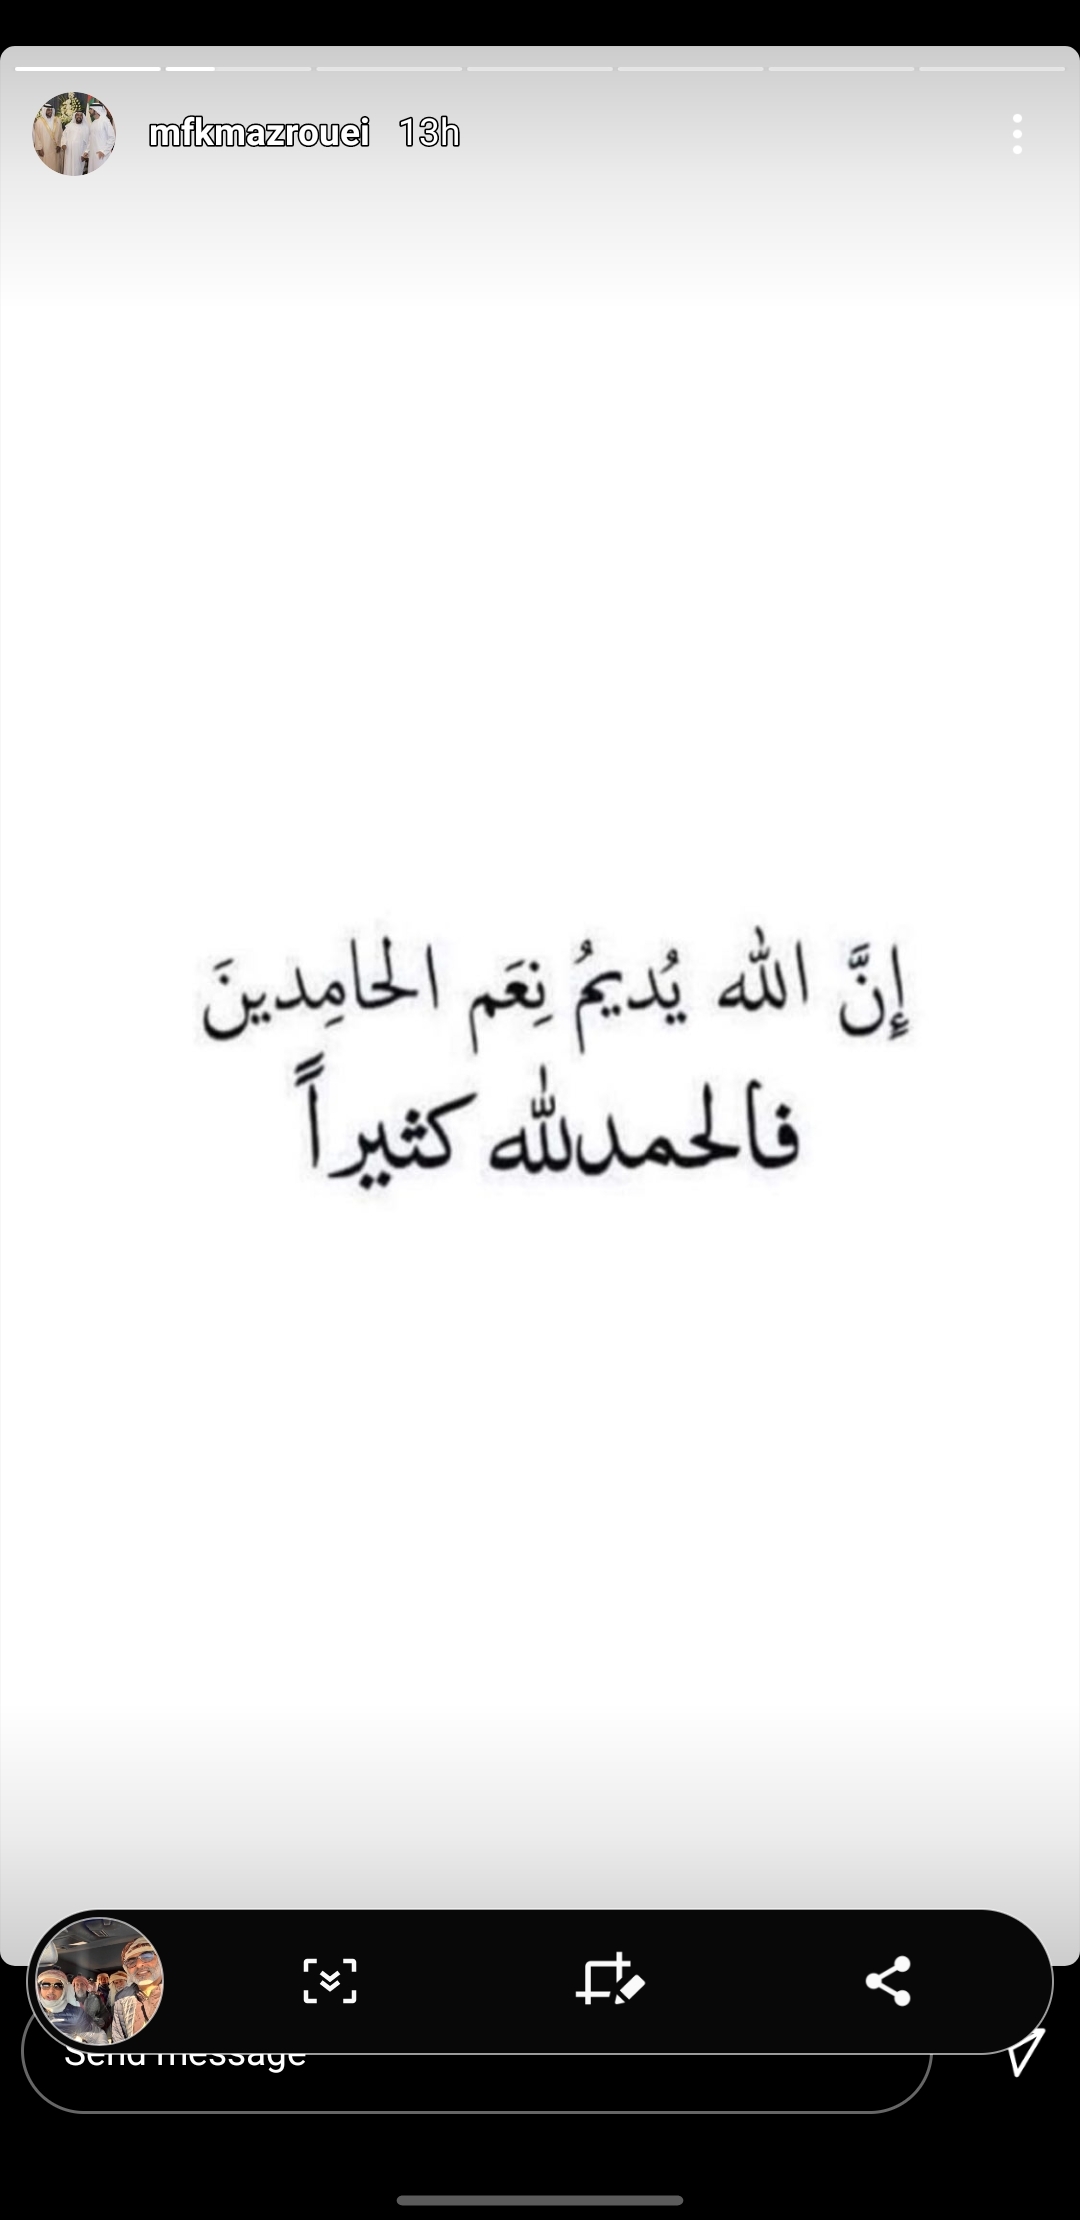 mfkmazrouei 13h
إِنَّ الله يُديمُ نِعَم الحامِدينَ
فالحمدلله كثيراً
Send message